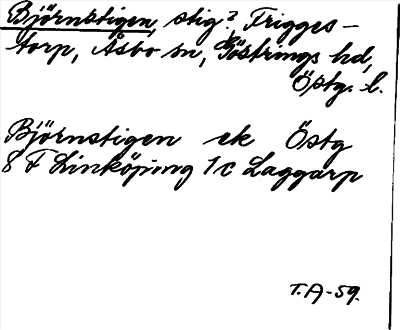 Björnstigen, stig? Trigges-
torp, Åsbo sn, Göstrings hd,
Östg. l.
Björnstigen ek Östg
8 F Linköping 1c Laggarp
T.A-59.